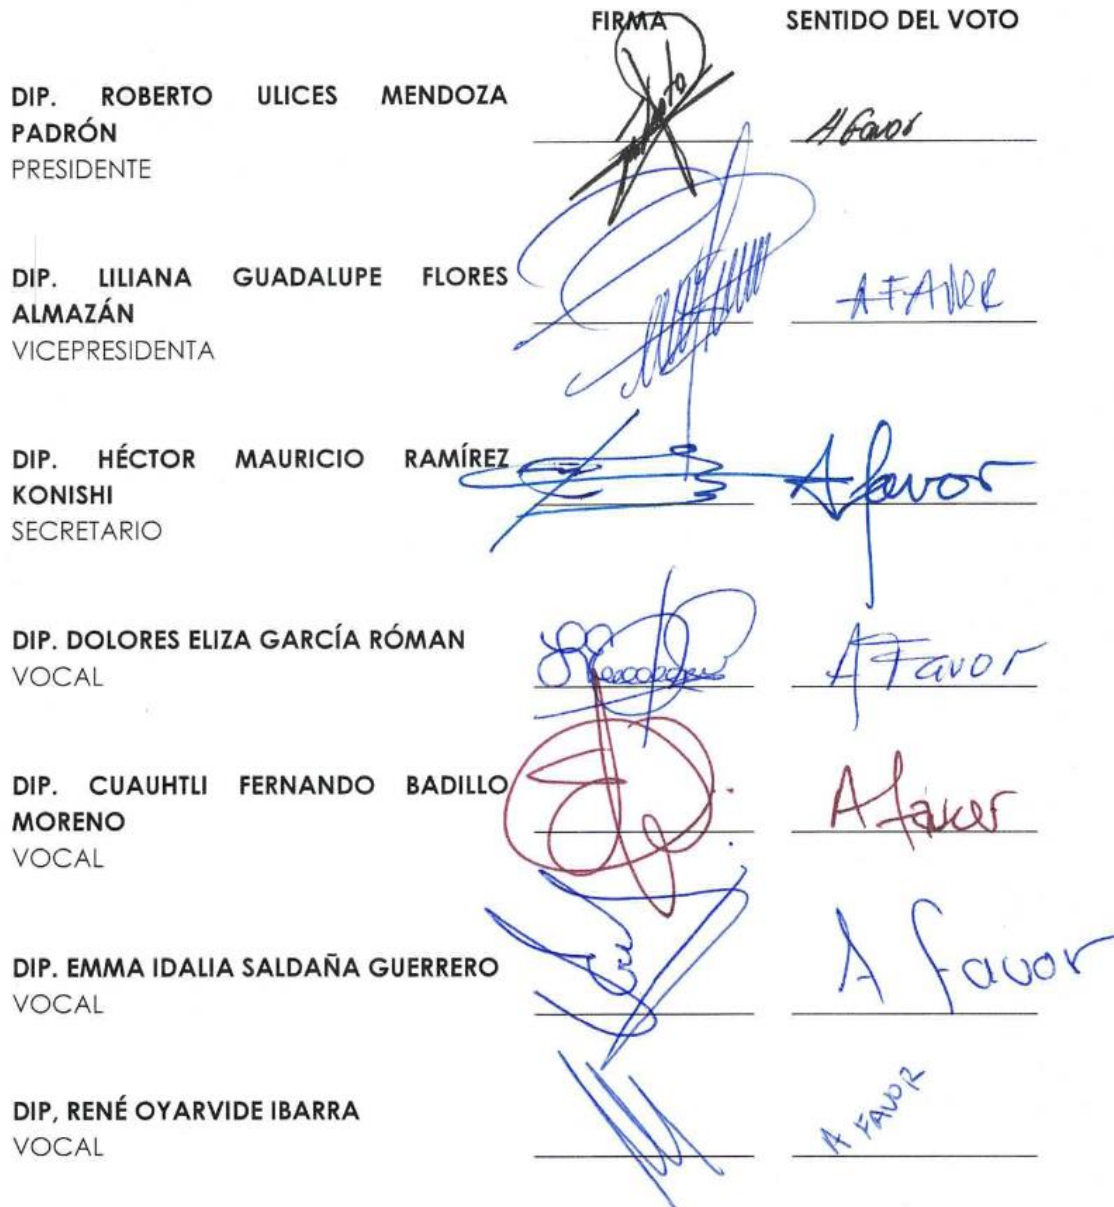 FIRMA SENTIDO DEL VOTO
DIP. ROBERTO ULICES MENDOZA
PADRÓN
PRESIDENTE
A favor
DIP. LILIANA GUADALUPE FLORES
ALMAZÁN
VICEPRESIDENTA
A FAVOR
DIP. HÉCTOR MAURICIO RAMÍREZ
KONISHI
SECRETARIO
A favor
DIP. DOLORES ELIZA GARCÍA RÓMAN
VOCAL
A Favor
DIP. CUAUHTLI FERNANDO BADILLO
MORENO
VOCAL
A favor
DIP. EMMA IDALIA SALDAÑA GUERRERO
VOCAL
A favor
DIP, RENÉ OYARVIDE IBARRA
VOCAL
A FAVOR